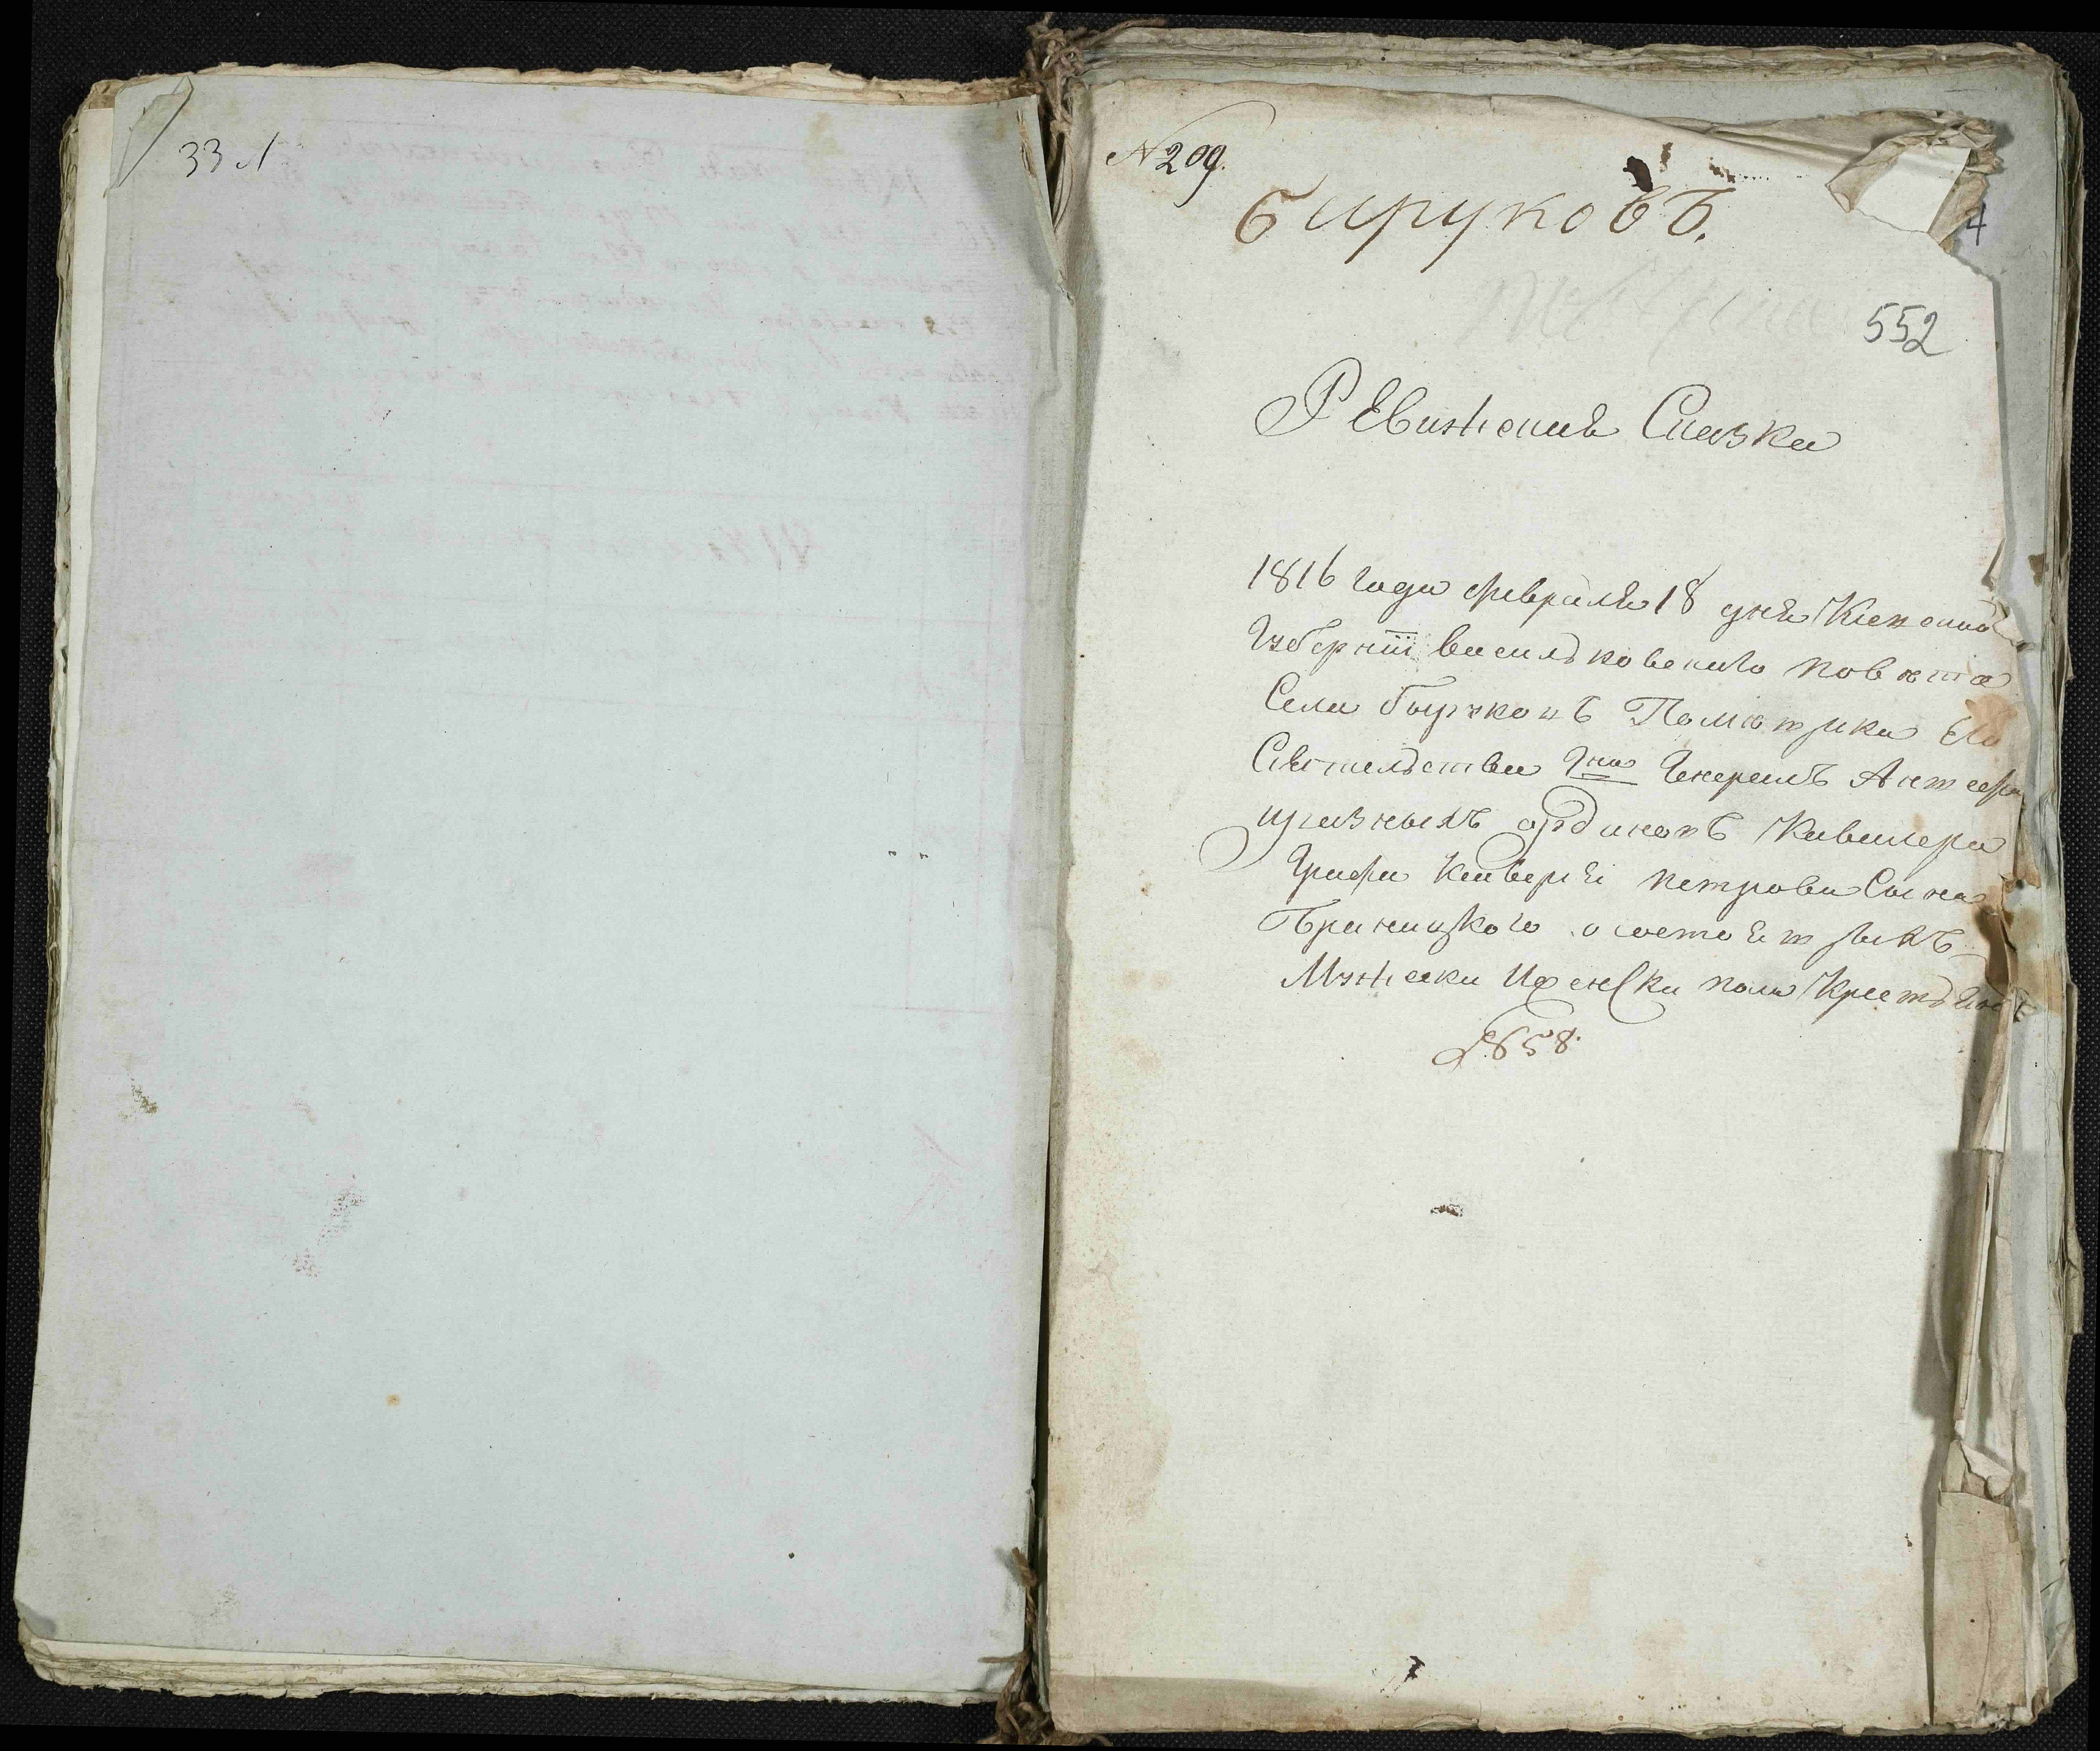 33 л
№ 209.
бируковъ.
552
Ревизская Сказка
1816 года февраля 18 дня Киевской
Губерніи васильковского повета
Села бырукоъ Помещика Его
Сіятельства Гна Генералъ Аншефа
разныхъ ординовъ Кавалера
Графа Ксаверія петрова Сына
Браницкого о состоящихъ
Мужеска И женска пола Крестьянъ